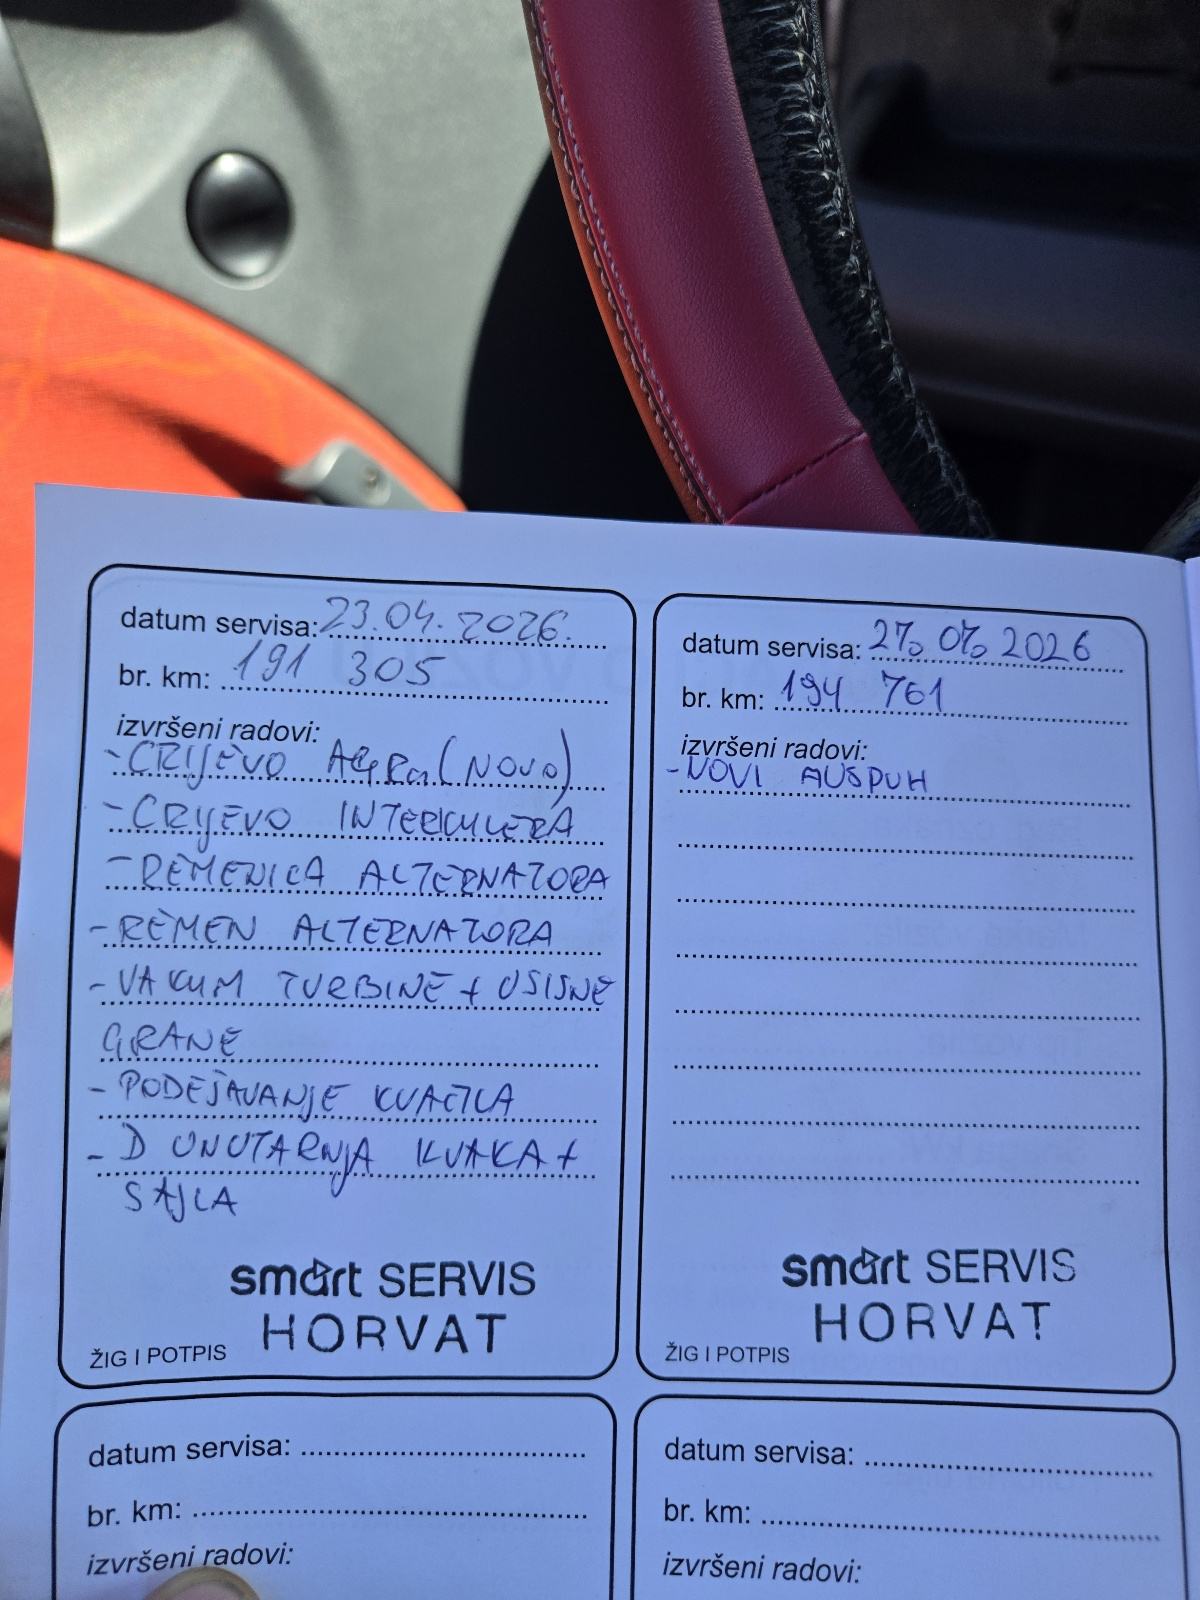 datum servisa: 23.04.2026.
br. km: 191 305
izvršeni radovi:
- CRIJEVO (NOVO)
- CRIJEVO INTERKULERA
- REMENICA ALTERNATORA
- REMEN ALTERNATORA
- VAKUM TURBINE + USISNE
GRANE
- PODEŠAVANJE KVAČILA
- D UNUTARNJA KVAKA +
SAJLA
smart SERVIS
HORVAT
ŽIG I POTPIS
datum servisa: 27. 07. 2026
br. km: 194 761
izvršeni radovi:
- NOVI AUSPUH
smart SERVIS
HORVAT
ŽIG I POTPIS
datum servisa:
br. km:
izvršeni radovi:
datum servisa:
br. km:
izvršeni radovi: